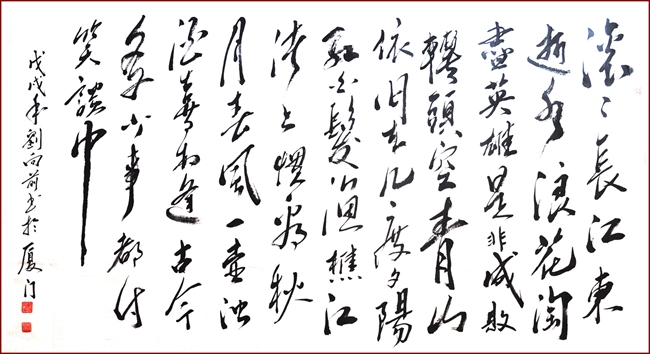 滚々長江東
逝水浪花淘
盡英雄是非成敗
轉頭空青山
依旧在几度夕陽
紅白髮漁樵江
渚上慣看秋
月春風一壺濁
酒喜相逢古今
多少事都付
笑談中
戊戌年劉向前书於厦门